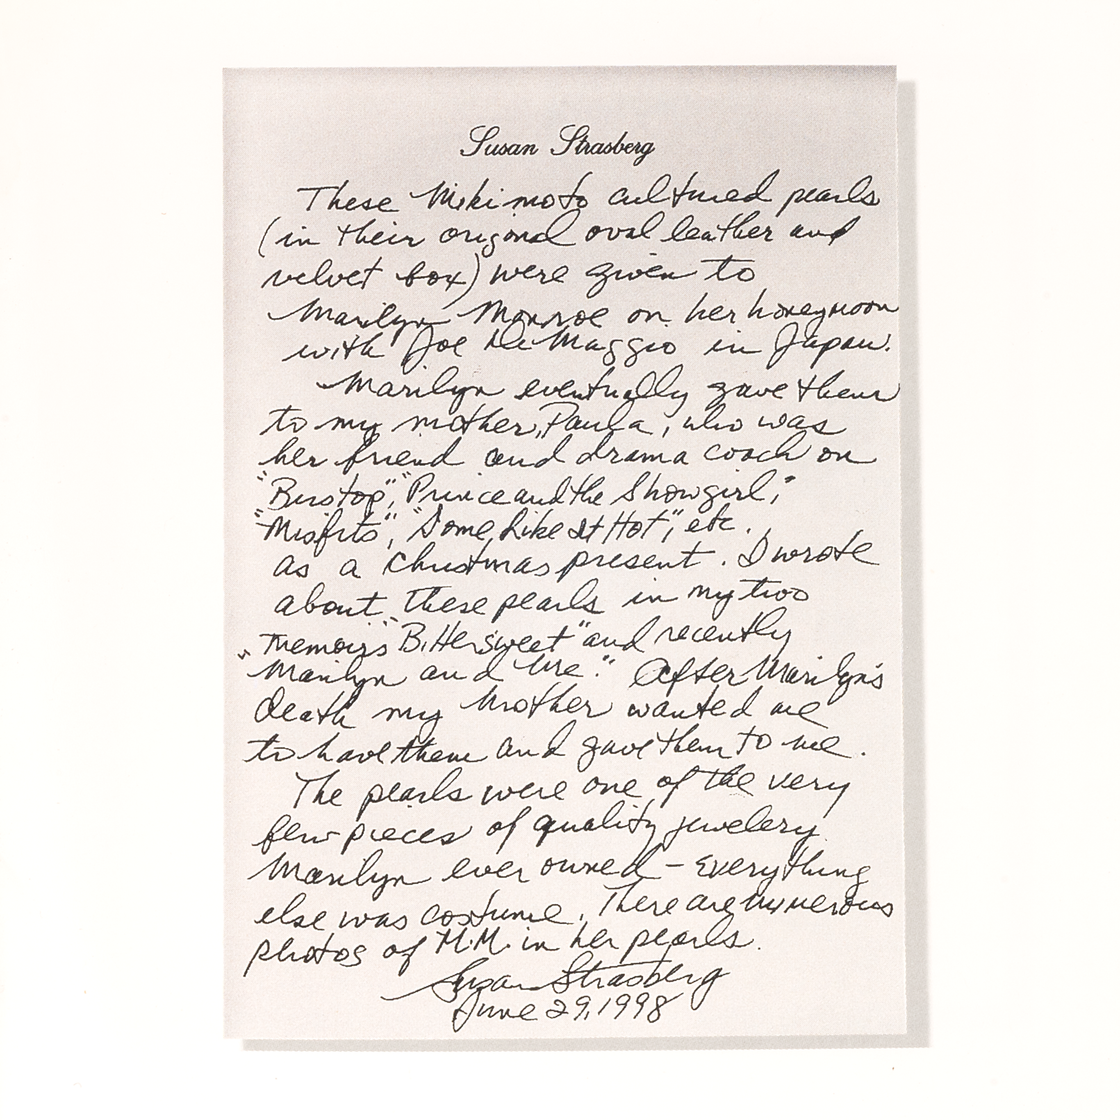 Susan Strasberg
These Mikimoto cultured pearls
(in their original oval leather and
velvet box) were given to
Marilyn Monroe on her honeymoon
with Joe DiMaggio in Japan.
Marilyn eventually gave them
to my mother, Paula, who was
her friend and drama coach on
"Bustop", "Prince and the Showgirl,"
"Misfits", "Some Like It Hot", etc.
as a Christmas present. I wrote
about these pearls in my two
memoirs "Bittersweet" and recently
"Marilyn and Me." After Marilyn's
death my mother wanted me
to have them and gave them to me.
The pearls were one of the very
few pieces of quality jewelery
Marilyn ever owned - everything
else was costume. There are numerous
photos of M.M. in her pearls.
Susan Strasberg
June 29, 1998